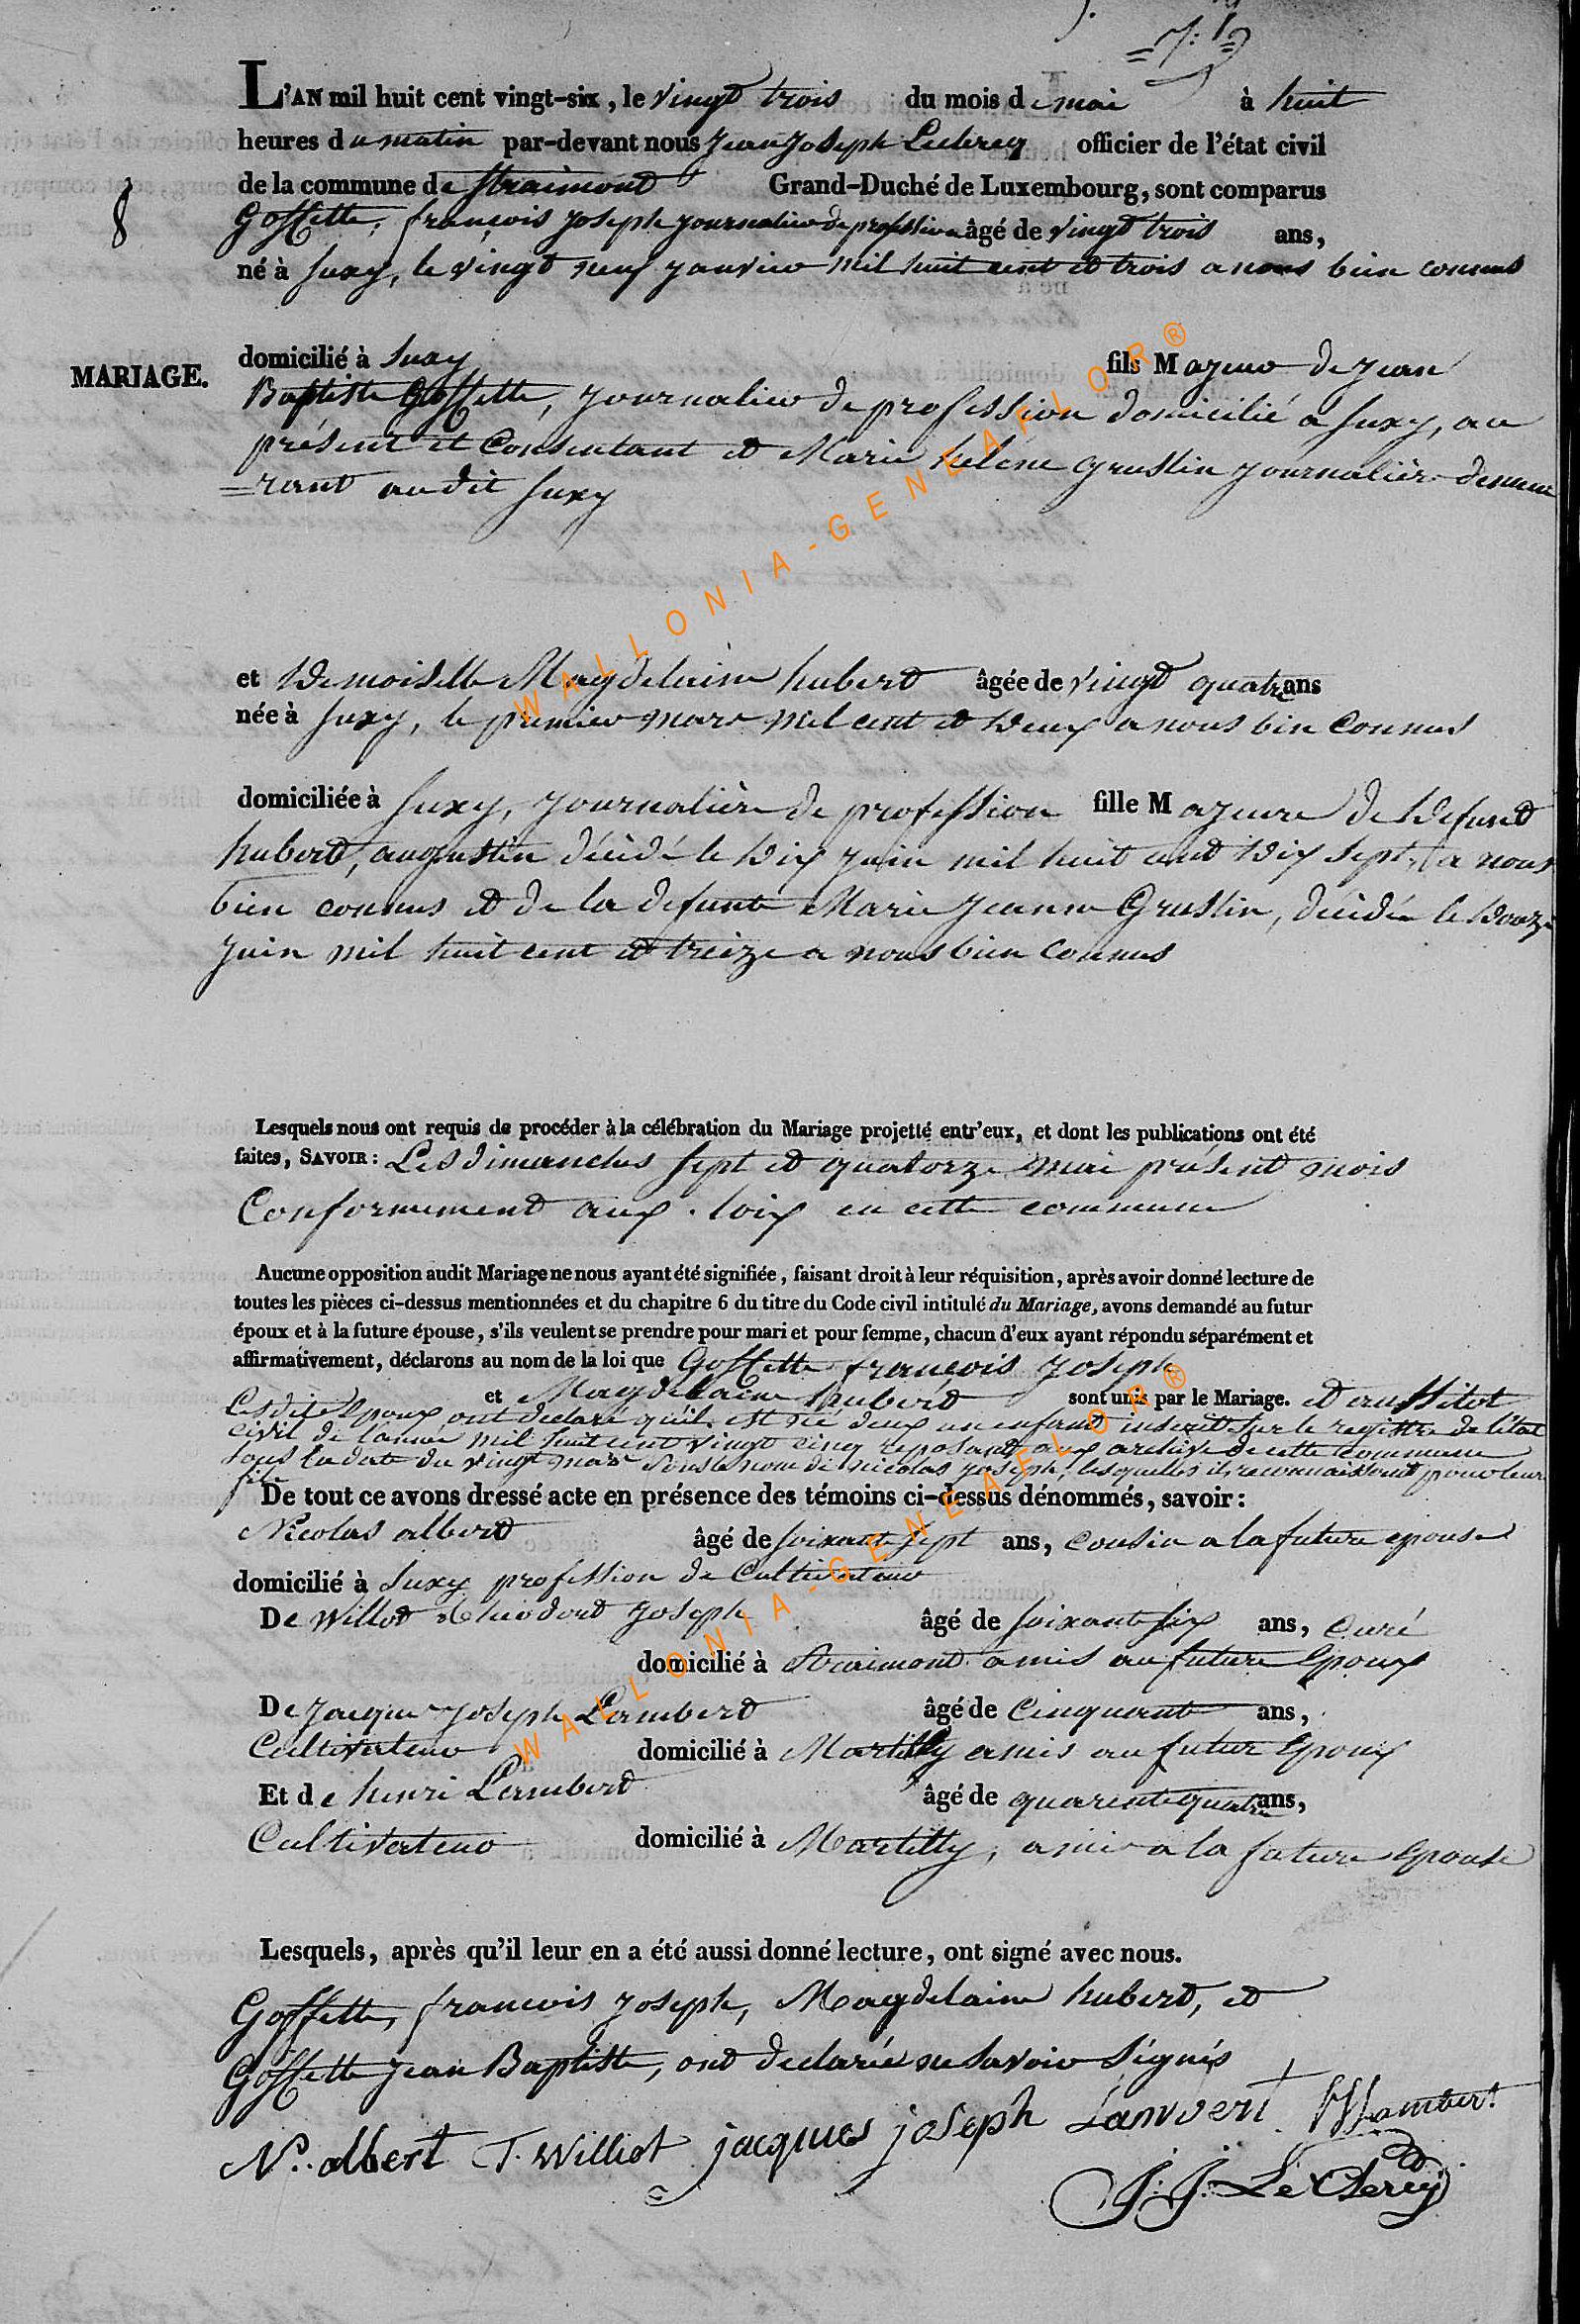 = N: 9 =
L'AN mil huit cent vingt-six, le vingt trois du mois de mai à huit
heures du matin par-devant nous Jean Joseph Leclercq officier de l'état civil
de la commune de Straimont Grand-Duché de Luxembourg, sont comparus
8
Goffette, françois joseph journalier de profession âgé de vingt trois ans,
né à Suxy, le vingt neuf janvier mil huit cent et trois a nous bien connus
MARIAGE.
domicilié à Suxy fils Majeur de jean
Baptiste Goffette, journalier de profession domicilié a Suxy, au
présent et Consentant et Marie helene Grustin journalière demeu
=rant audit Suxy
et Demoiselle Magdelaine hubert âgée de vingt quatre ans
née à Suxy, le premier mars mil cent et deux a nous bien Connus
domiciliée à Suxy, journalière de profession fille Majeure de defunt
hubert, augustin décédé le dix juin mil huit cent dix sept, a nous
bien connus et de la defunte Marie jeanne Grustin, décédée le douze
juin mil huit cent et treize a nous bien Connus
Lesquels nous ont requis de procéder à la célébration du Mariage projetté entr'eux, et dont les publications ont été
faites, SAVOIR : Les dimanches sept et quatorze mai présent mois
Conformement aux loix en cette commune
Aucune opposition audit Mariage ne nous ayant été signifiée, faisant droit à leur réquisition, après avoir donné lecture de
toutes les pièces ci-dessus mentionnées et du chapitre 6 du titre du Code civil intitulé du Mariage, avons demandé au futur
époux et à la future épouse, s'ils veulent se prendre pour mari et pour femme, chacun d'eux ayant répondu séparément et
affirmativement, déclarons au nom de la loi que Goffette françois joseph
et Magdelaine hubert sont unis par le Mariage. et aussitot
Lesdits Epoux ont declaré qu'il est né deux un enfant inscrit sur le registre de l'état
civil de lannee mil huit cent vingt cinq reposant aux archive de cette commune
sous la date du vingt mars sous le nom de nicolas joseph, lesquelles ils reconnaissent pour leur
fils
De tout ce avons dressé acte en présence des témoins ci-dessus dénommés, savoir :
Nicolas albert âgé de soixante sept ans, cousin a la future epouse
domicilié à Suxy profession de Cultivateur
De Willot théodord joseph âgé de soixante six ans, curé
domicilié à Straimont amis au future Epoux
De jacque joseph Lambert âgé de cinquante ans,
Cultivateur domicilié à Martilly amis au futur Epoux
Et de henri Lambert âgé de quarente quatre ans,
Cultivateur domicilié à Martilly, amie a la future Epouse
Lesquels, après qu'il leur en a été aussi donné lecture, ont signé avec nous.
Goffette, francois joseph, Magdelaine hubert, et
Goffette jean Baptiste, ont declarée ne savoir Signés
N. albert T. Williot jacques joseph Lambert H Lambert
J. J. Le Clercq
WALLONIA-GENEAFLOR®
WALLONIA-GENEAFLOR®